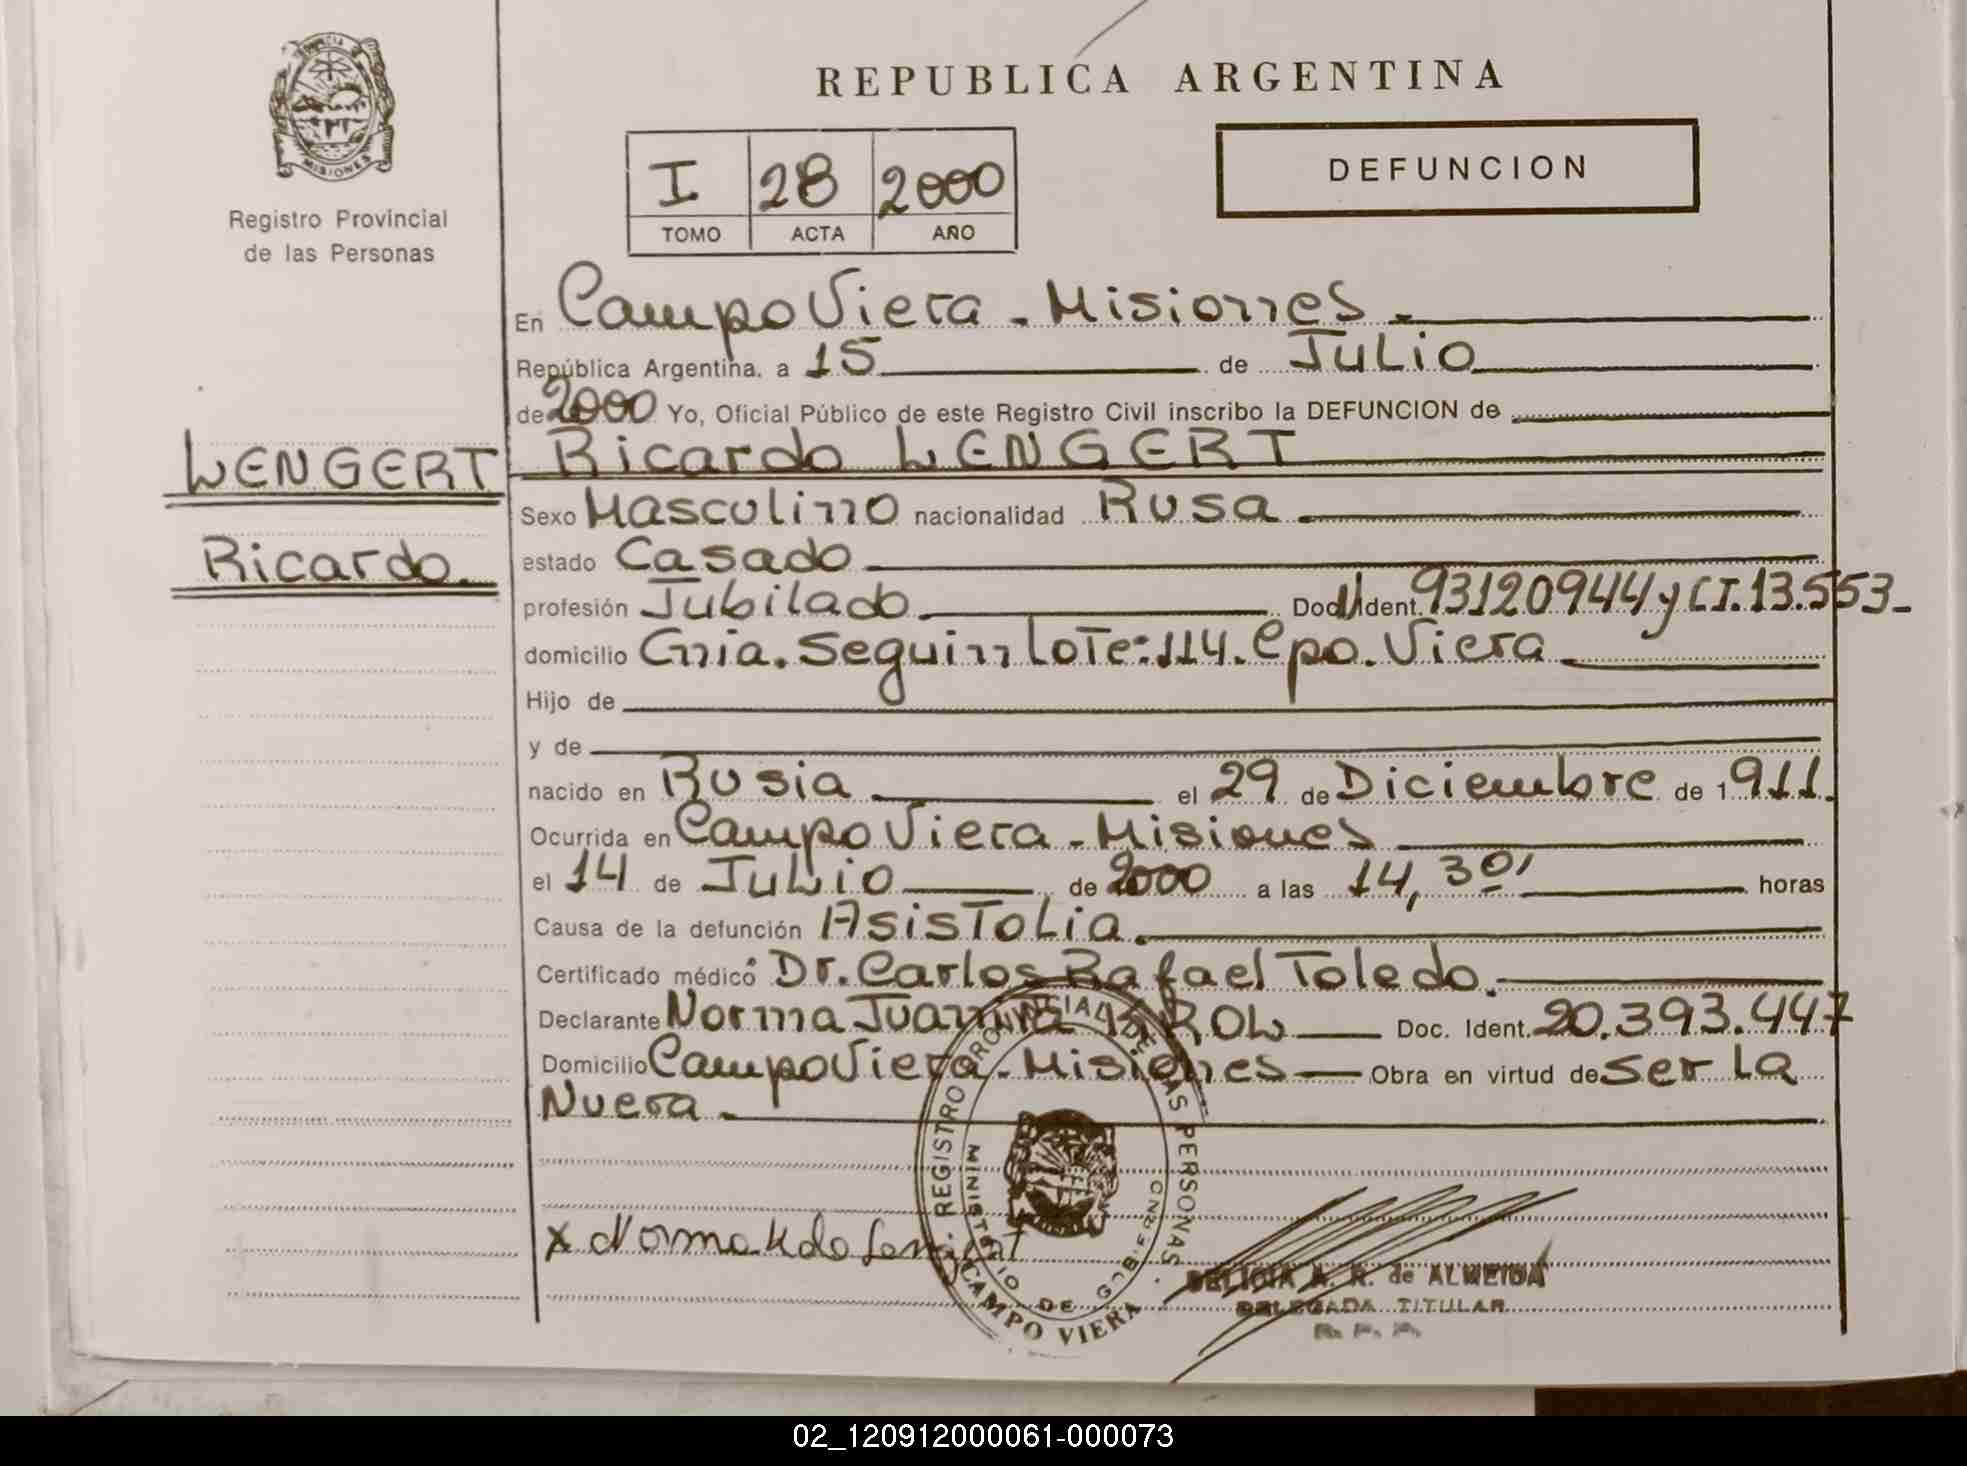 REPUBLICA ARGENTINA
PROVINCIA DE
MISIONES
Registro Provincial
de las Personas
I 28 2000
TOMO ACTA AÑO
DEFUNCION
En Campo Viera - Misiones.-
República Argentina, a 15 de Julio
de 2000 Yo, Oficial Público de este Registro Civil inscribo la DEFUNCION de
LENGERT
Ricardo LENGERT
Sexo Masculino nacionalidad Rusa
Ricardo.
estado Casado
profesión Jubilado Doc. Ident. 93120944 y C.I. 13.553-
domicilio Cnia. Seguin Lote: 114. Cpo. Viera
Hijo de
y de
nacido en Rusia el 29 de Diciembre de 1911.
Ocurrida en Campo Viera - Misiones
el 14 de Julio de 2000 a las 14,30' horas
Causa de la defunción Asistolia.
Certificado médico Dr. Carlos Rafael Toledo.
Declarante Norma Juanita Doc. Ident. 20.393.447
Domicilio Campo Viera - Misiones Obra en virtud de ser la
Nuera.
REGISTRO PROVINCIAL DE LAS PERSONAS
MINISTERIO DE GOBIERNO
CAMPO VIERA
x Norma K de Lengert
DELICIA A. R. de ALMEIDA
DELEGADA TITULAR
R. P. P.
02_120912000061-000073